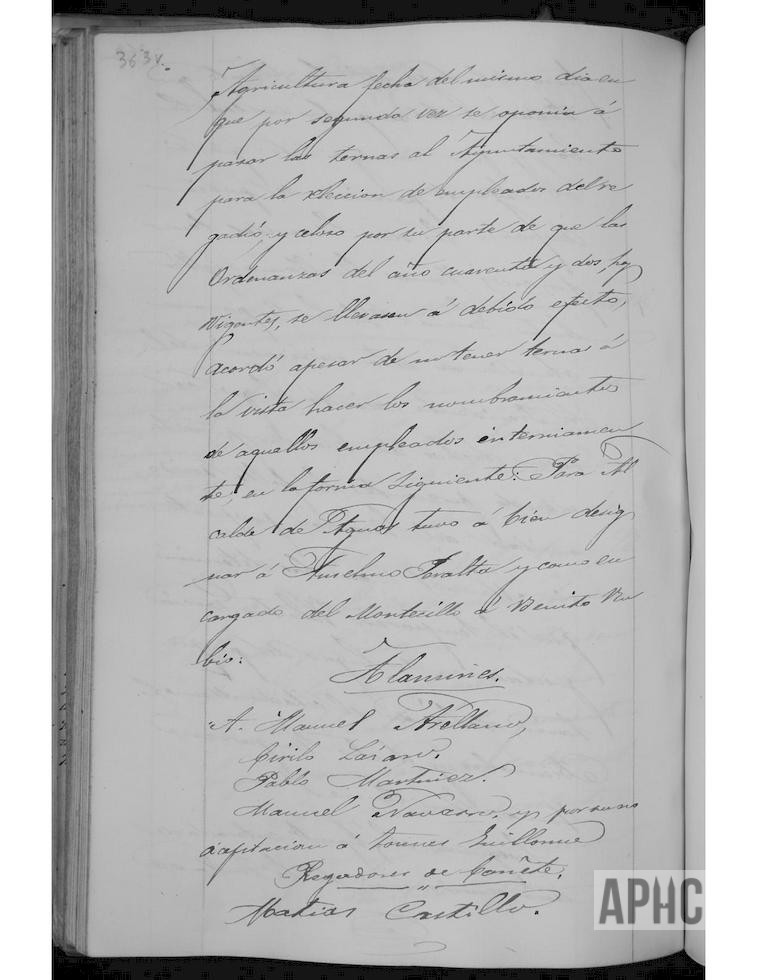 363v.
Agricultura fecha del mismo dia en
que por segunda vez se oponia á
pasar las ternas al Ayuntamiento
para la eleccion de empleados del re
gadio, y celoso por su parte de que las
Ordenanzas del año cuarenta y dos, hoy
vigentes, se llevasen á debido efecto,
acordó apesar de no tener ternas á
la vista hacer los nombramientos
de aquellos empleados interinamen
te, en la forma siguiente: Para Al
calde de Aguas tuvo á bien desig
nar á Anselmo Peralta y como en
cargado del Montecillo á Benito Ru
bio:
Alamines.
A. Manuel Arellano,
Cirilo Lázaro.
Pablo Martinez.
Manuel Navarro. y por su no
aceptacion á
Regadores de Cañete.
Matias Castillo.
APHC